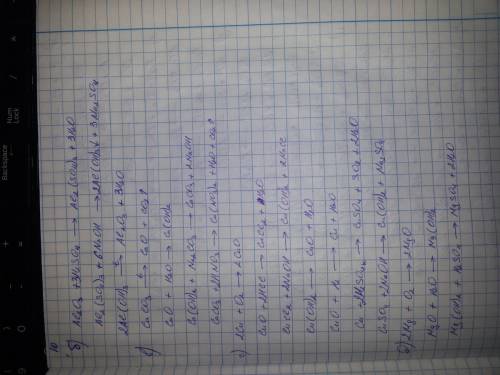 10
б) Al₂O₃ + 3H₂SO₄ → Al₂(SO₄)₃ + 3H₂O
Al₂(SO₄)₃ + 6NaOH → 2Al(OH)₃↓ + 3Na₂SO₄
2Al(OH)₃ →t Al₂O₃ + 3H₂O
CaCO₃ →t CaO + CO₂↑
CaO + H₂O → Ca(OH)₂
Ca(OH)₂ + Na₂CO₃ → CaCO₃ + 2NaOH
CaCO₃ + 2HNO₃ → Ca(NO₃)₂ + H₂O + CO₂↑
2Cu + O₂ → 2CuO
CuO + 2HCl → CuCl₂ + H₂O
CuCl₂ + 2NaOH → Cu(OH)₂ + 2NaCl
Cu(OH)₂ → CuO + H₂O
CuO + H₂ → Cu + H₂O
Cu + 2H₂SO₄ → CuSO₄ + SO₂ + 2H₂O
CuSO₄ + 2NaOH → Cu(OH)₂ + Na₂SO₄
2Mg + O₂ → 2MgO
MgO + H₂O → Mg(OH)₂
Mg(OH)₂ + H₂SO₄ → MgSO₄ + 2H₂O
Backspace
Num Lock